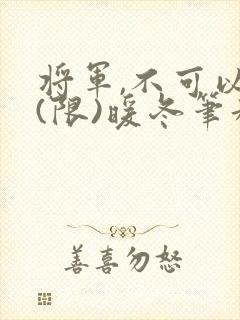 將軍,不可以
(限)暖冬筆
善喜勿怒